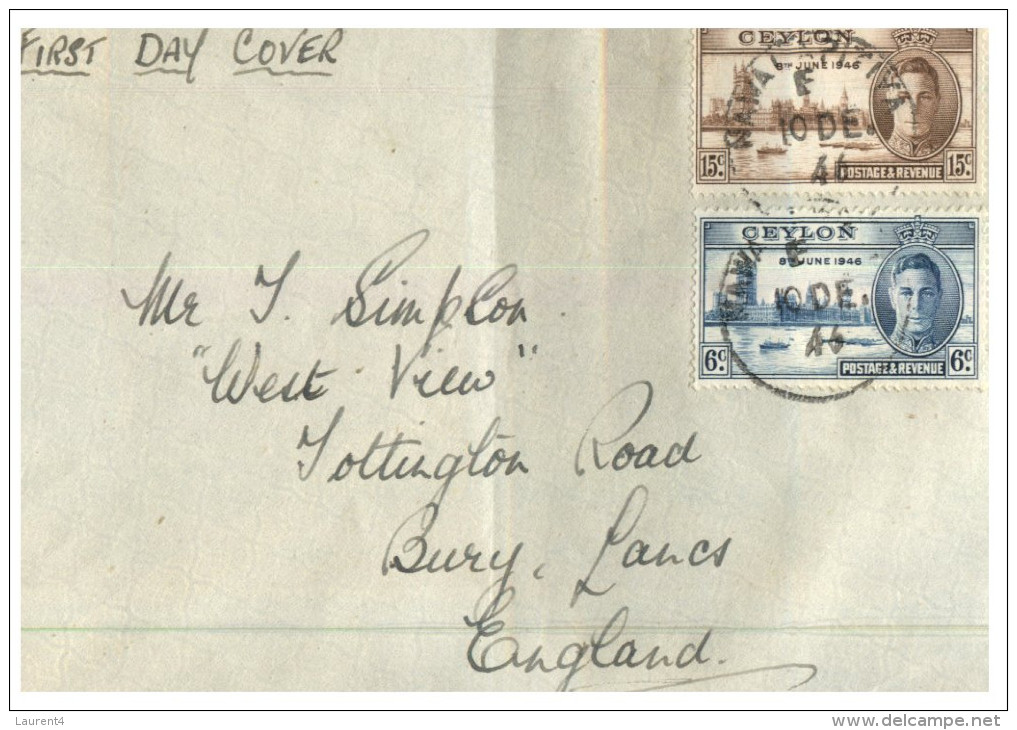 FIRST DAY COVER
CEYLON
8TH JUNE 1946
F
10 DE.
46
15c
POSTAGE & REVENUE
15c
CEYLON
8TH JUNE 1946
F
10 DE.
46
6c
POSTAGE & REVENUE
6c
Mr J. Simpson
"West View"
Tottington Road
Bury, Lancs
England.
Laurent4
www.delcampe.net